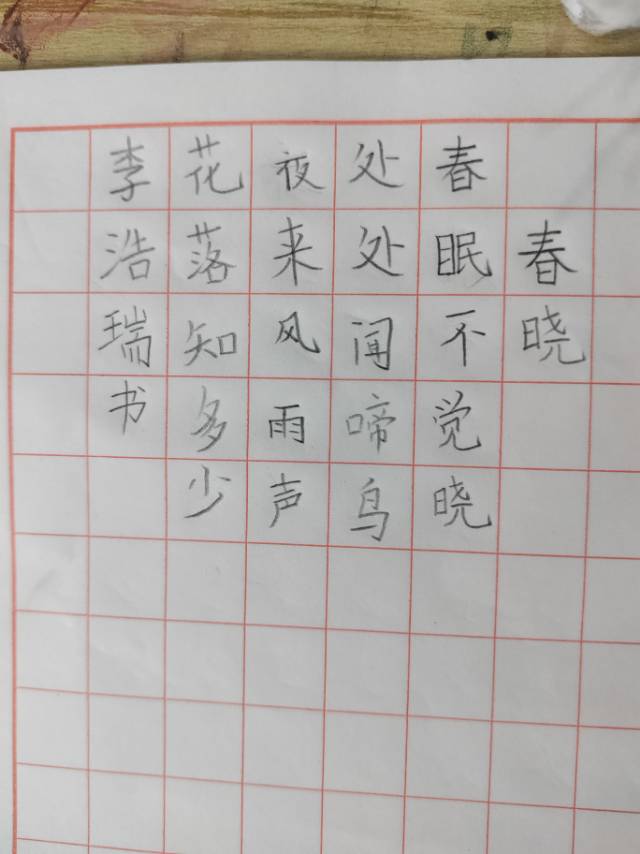 春晓
春眠不觉晓
处处闻啼鸟
夜来风雨声
花落知多少
李浩瑞书